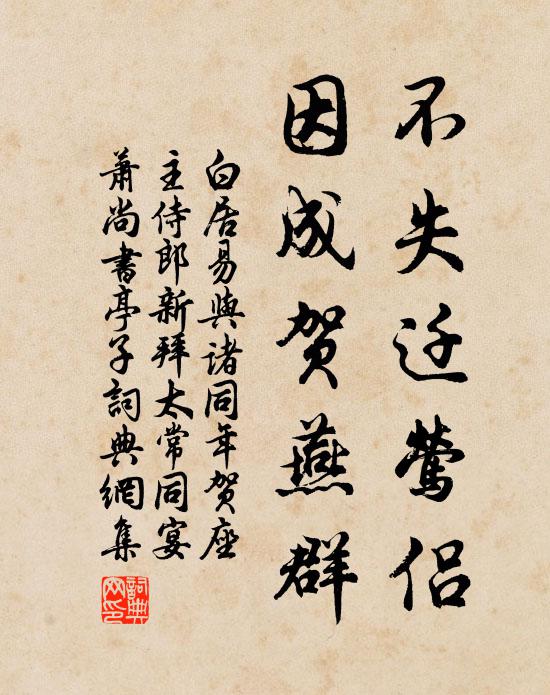 不失迁莺侣
因成贺燕群
白居易與诸同年贺座
主侍郎新拜太常同宴
萧尚書亭子詞典網集
詞典网印